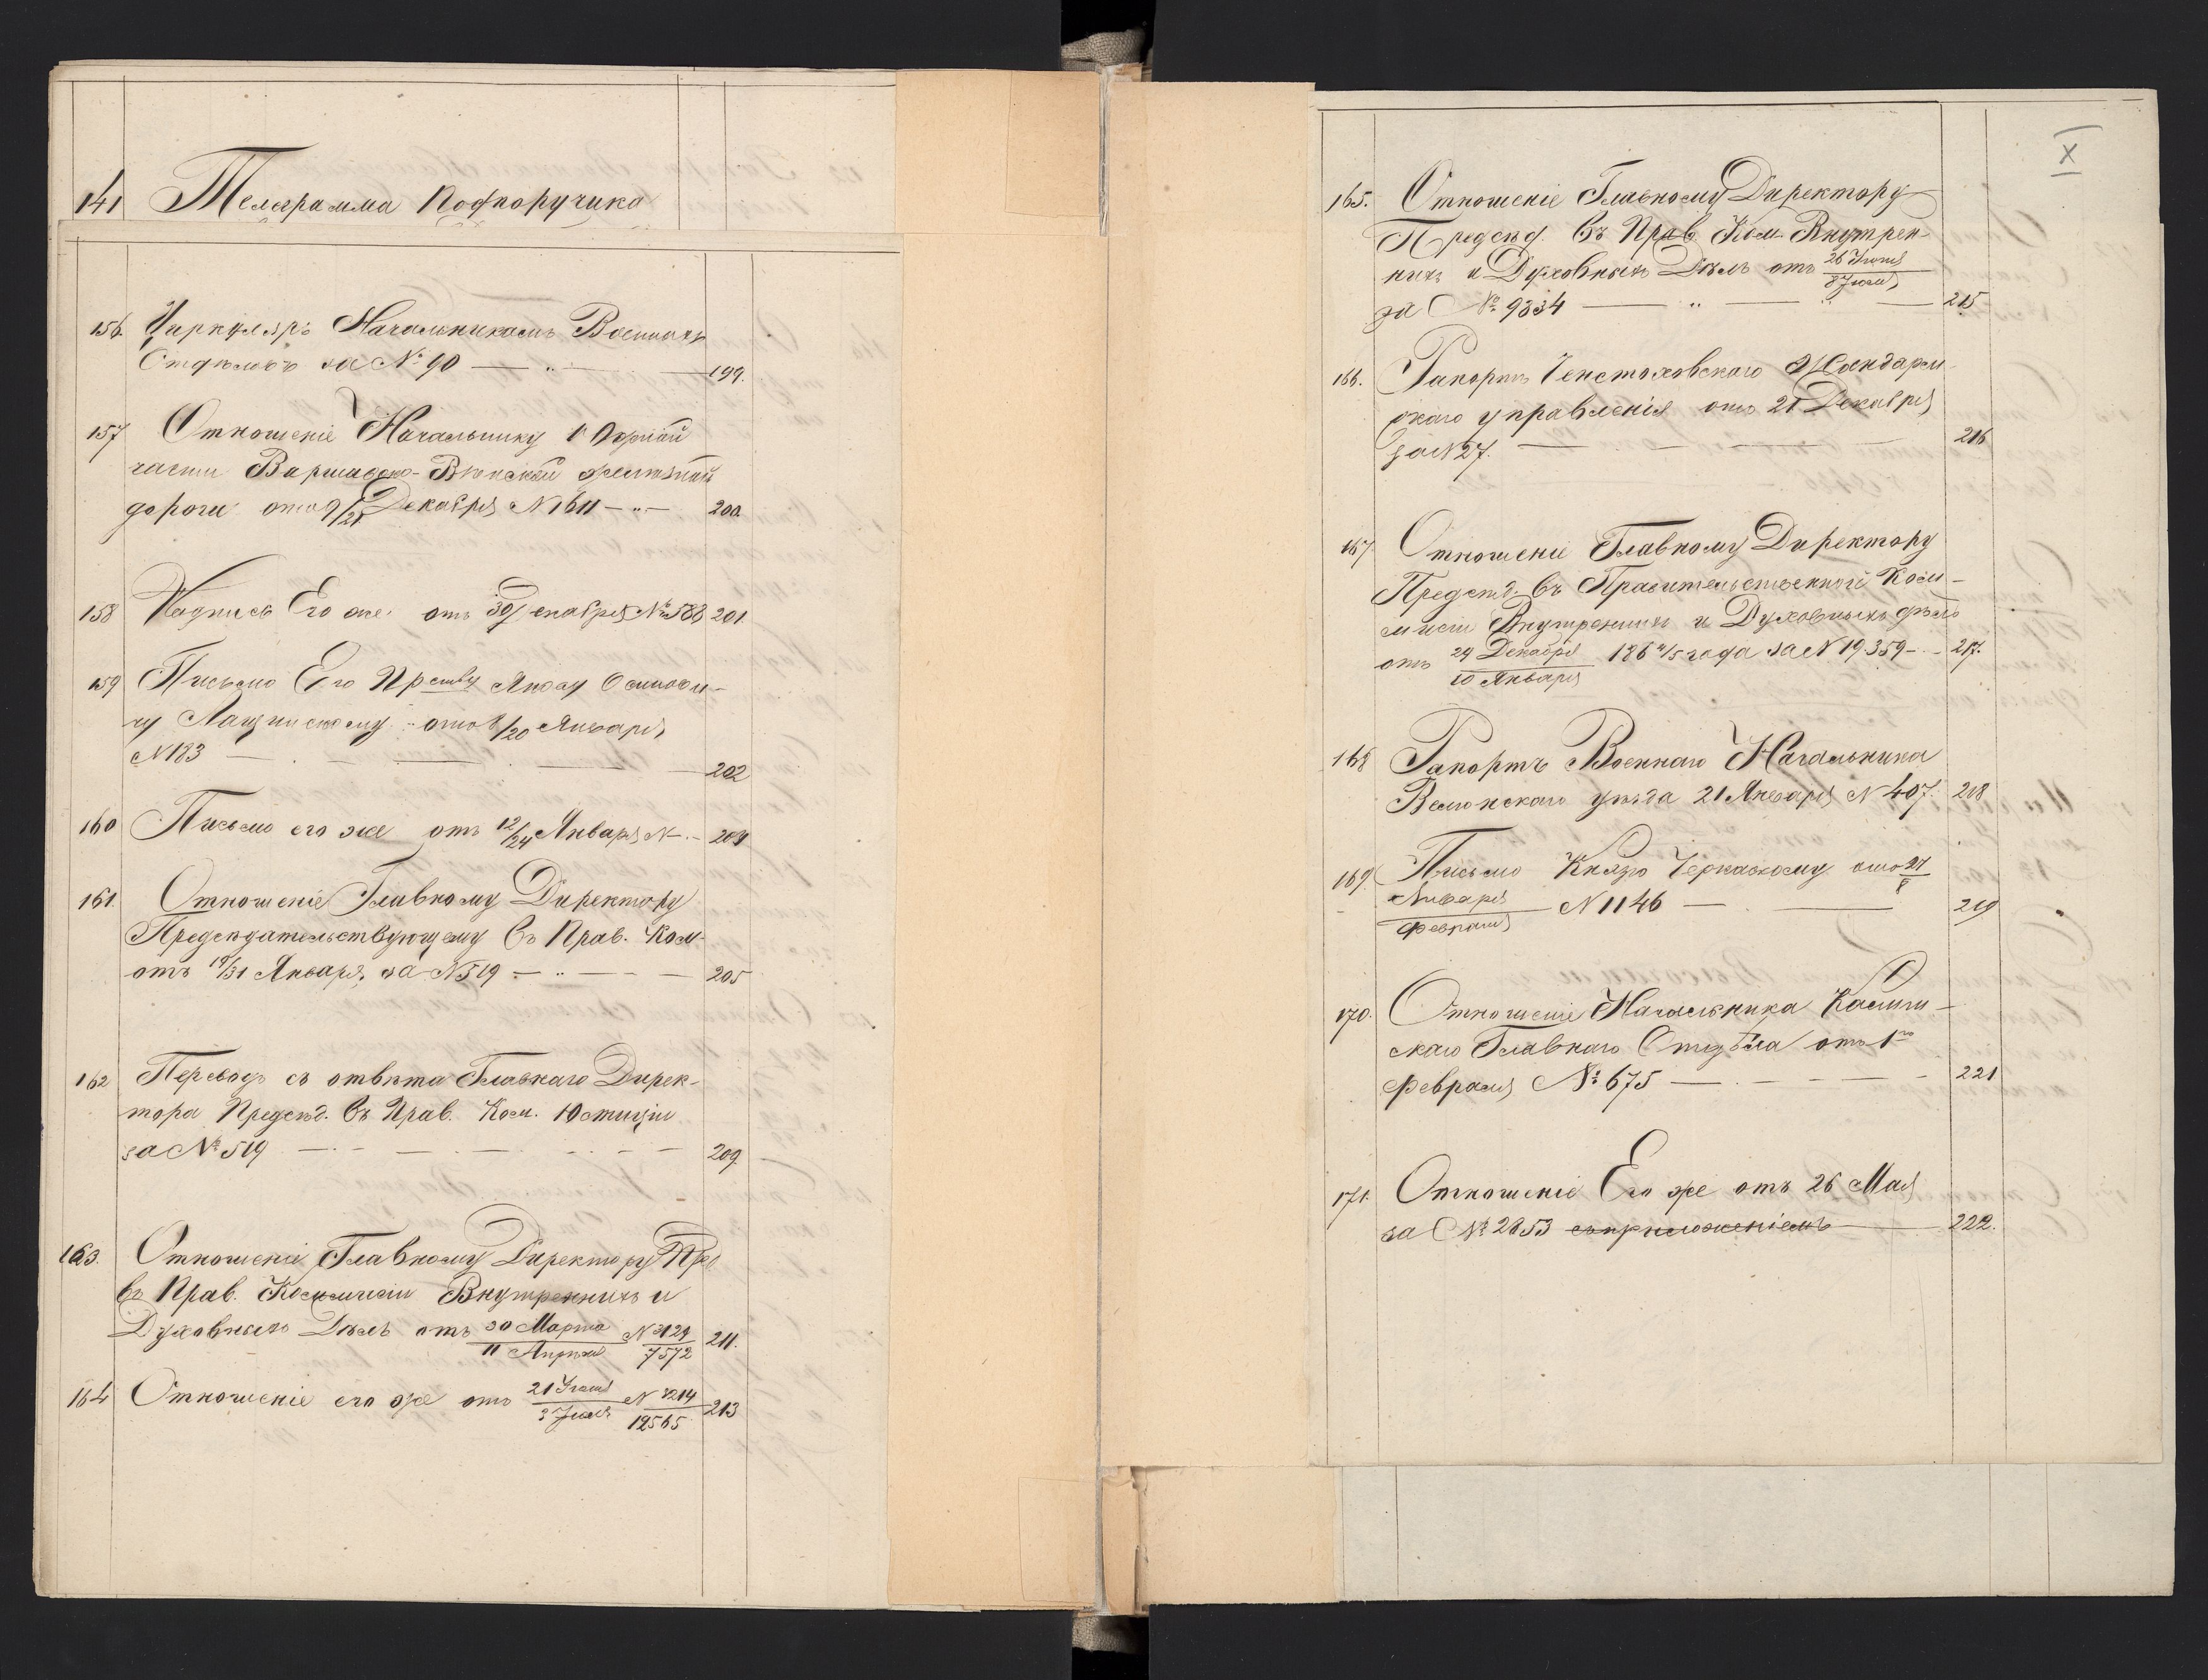 141 Телеграмма Подпоручика
156. Циркуляръ Начальникамъ Военныхъ
Отдѣловъ за № 90 — 199.
157 Отношеніе Начальнику
части Варшавско-Вѣнской желѣзной
дороги отъ 9/21 Декабря N 1611 — 200
158 Надпись Его же отъ 30 Декабря № 588 201
159 Письмо Его Пр-ству Осипови-
чу Лащинскому отъ 8/20 Января
N 183 — 202
160 Письмо его же отъ 12/24 Января N — 204
161. Отношеніе Главному Директору
Предсѣдательствующему въ Прав. Ком.
отъ 19/31 Января за N 519 — 205
162 Переводъ съ отвѣта Главнаго Дирек-
тора Предсѣд. въ Прав. Ком. Юстиціи
за № 519 — 209
163. Отношеніе Главному Директору Пред
въ Прав. Коммисіи Внутреннихъ и
Духовныхъ Дѣлъ отъ 30 Марта / 11 Апрѣля N 3129 / 7572 211.
164 Отношеніе его же отъ 21 Іюня / 3 Іюля N 4214 / 12565 213
X
165. Отношеніе Главному Директору
Предсѣд. въ Прав. Ком. Внутрен-
нихъ и Духовныхъ Дѣлъ отъ 26 Іюня / 8 Іюля
за № 9834 — 215
166. Рапортъ Ченстоховскаго Жандарм-
скаго управленія отъ 21 Декабря
за N 27. — 216
167 Отношеніе Главному Директору
Предсѣд. въ Правительственной Ком-
мисіи Внутреннихъ и Духовныхъ дѣлъ
отъ 29 Декабря / 10 Января 1864/5 года за N 19359 — 217.
168 Рапортъ Военнаго Начальника
Велюнскаго уѣзда 21 Января N 407. 218
169. Письмо Князю Черкасскому отъ 27 / 8
Января / Февраля N 1146 — 219
170. Отношеніе Начальника Калиш-
скаго Главнаго Отдѣла отъ 1го
Февраля № 675 — 221
171. Отношеніе Его же отъ 26 Мая
за № 2853 съ приложеніемъ — 222.